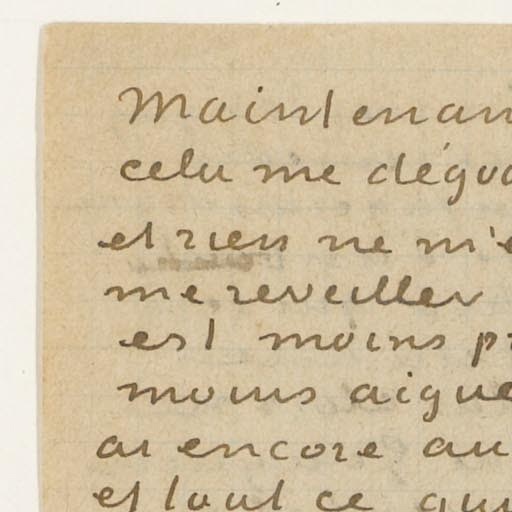 Maintenan
cela me dégoa
et rien ne m'e
me reveiller
est moins pr
moins aigue
ai encore au
et tout ce qui